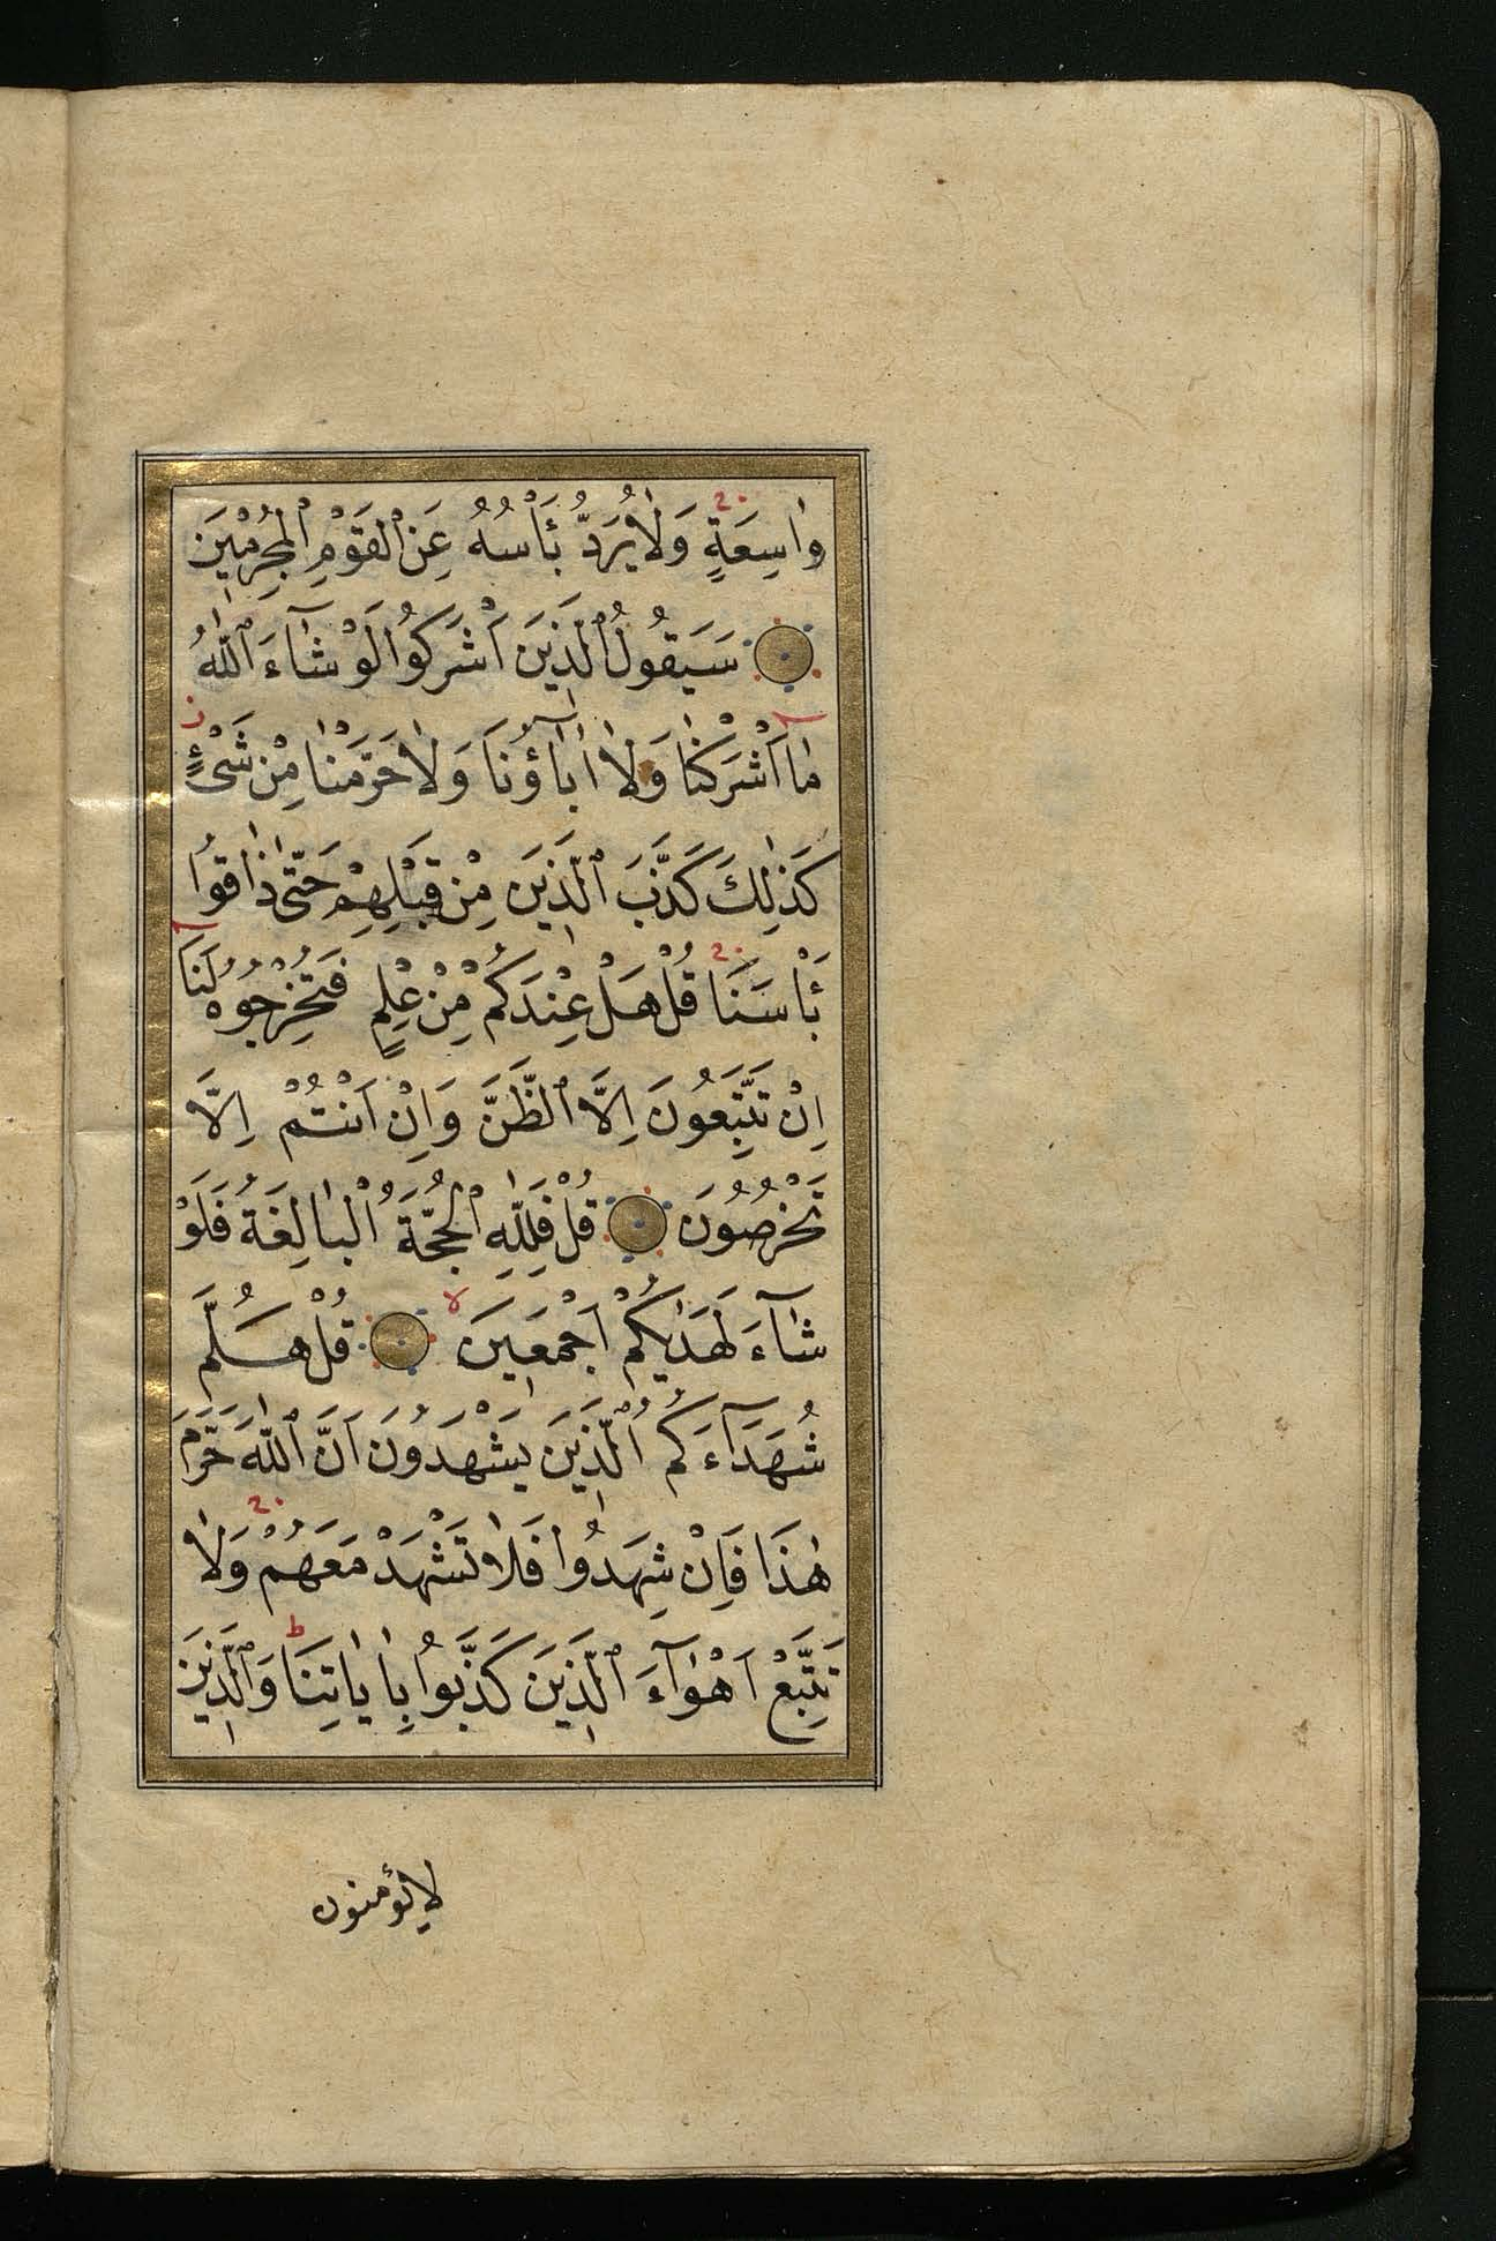 وٰاسِعَةٍ وَلٰا يُرَدُّ بَأْسُهُ عَنِ ٱلْقَوْمِ ٱلْمُجْرِمٖينَ
سَيَقُولُ ٱلَّذٖينَ اَشْرَكُوا لَوْ شٰآءَ ٱللّٰهُ
مٰا اَشْرَكْنٰا وَلٰا اٰبٰآؤُنَا وَلٰا حَرَّمْنٰا مِنْ شَىْءٍ
كَذٰلِكَ كَذَّبَ ٱلَّذٖينَ مِنْ قَبْلِهِمْ حَتّٰى ذٰاقُوا
بَأْسَنَا قُلْ هَلْ عِنْدَكُمْ مِنْ عِلْمٍ فَتُخْرِجُوهُ لَنَا
اِنْ تَتَّبِعُونَ اِلَّا ٱلظَّنَّ وَاِنْ اَنْتُمْ اِلَّا
تَخْرُصُونَ قُلْ فَلِلّٰهِ ٱلْحُجَّةُ ٱلْبٰالِغَةُ فَلَوْ
شٰآءَ لَهَدٰيكُمْ اَجْمَعٖينَ قُلْ هَلُمَّ
شُهَدَآءَكُمُ ٱلَّذٖينَ يَشْهَدُونَ اَنَّ ٱللّٰهَ حَرَّمَ
هٰذَا فَاِنْ شَهِدُوا فَلٰا تَشْهَدْ مَعَهُمْ وَلٰا
تَتَّبِعْ اَهْوٰآءَ ٱلَّذٖينَ كَذَّبُوا بِاٰيٰاتِنَا وَٱلَّذٖينَ
لا يؤمنون